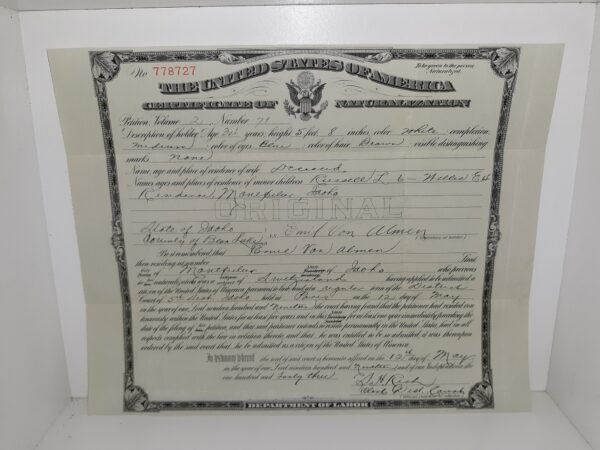 No 778727
To be given to the person Naturalized.
THE UNITED STATES OF AMERICA
CERTIFICATE OF NATURALIZATION
Petition, Volume 2 Number 71
Description of holder: Age 34 years; height 5 feet 8 inches; color White; complexion
Medium; color of eyes Blue; color of hair Brown; visible distinguishing
marks None
Name, age and place of residence of wife Deceased
Names ages and places of residence of minor children Russell L 6 - Willis E
Residence Montpelier, Idaho
ORIGINAL
State of Idaho
County of Bear Lake } ss. Emil Von Almen
(Signature of holder)
Be it remembered, that Von Almen
then residing at number
City of Montpelier of Idaho who previous
to his naturalization was a subject of Switzerland having applied to be admitted a
citizen of the United States of America pursuant to law, and at a regular term of the District
Court of 5th Idaho held at Paris on the 12 day of May
in the year of our Lord nineteen hundred and nineteen the court having found that the petitioner had resided con-
tinuously within the United States for at least five years and in this State for at least one year immediately preceding the
date of the filing of his petition, and that said petitioner intends to reside permanently in the United States, had in all
respects complied with the law in relation thereto, and that he was entitled to be so admitted, it was thereupon
ordered by the said court that he be admitted as a citizen of the United States of America.
In testimony whereof the seal of said court is hereunto affixed on the 12th day of May
in the year of our Lord nineteen hundred and nineteen and of our Independence the
one hundred and forty three
Clerk Dist. Court
DEPARTMENT OF LABOR